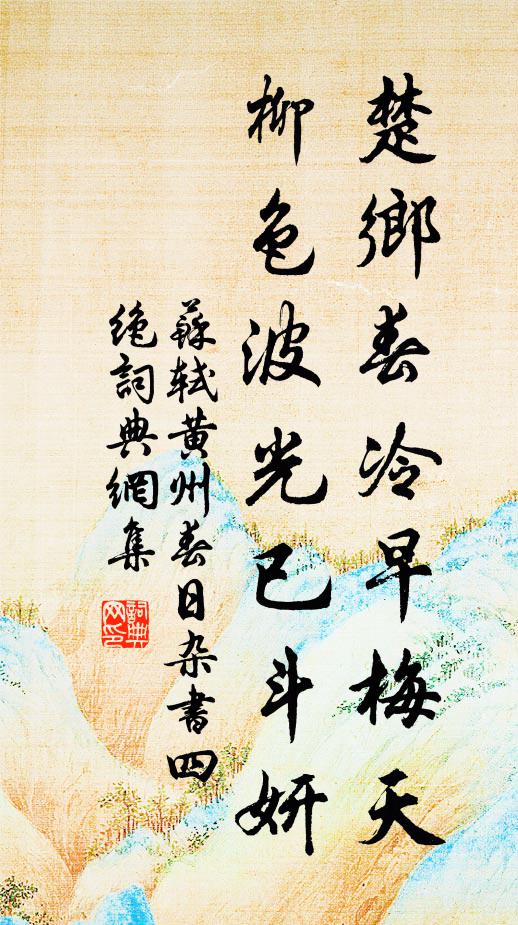 楚鄉春冷早梅天
柳色波光已斗妍
蘇軾黃州春日杂書四
绝詞典網集
詞典
网印